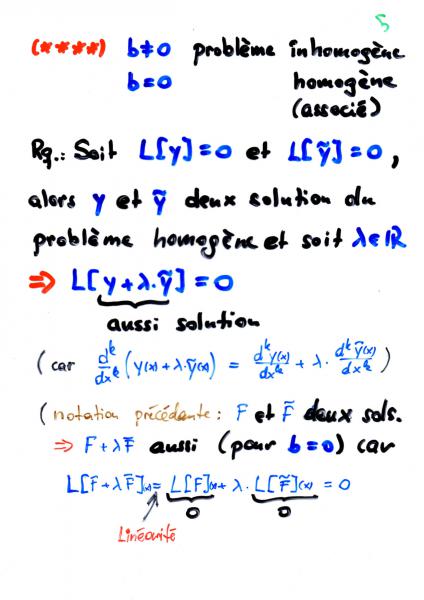 5
(****) b≠0 problème inhomogène
b=0 homogène
(associé)
Rq.: Soit L[y]=0 et L[ỹ]=0,
alors y et ỹ deux solution du
problème homogène et soit λ∈ℝ
⇒ L[y+λ.ỹ]=0
aussi solution
(car d^k/dx^k (y(x)+λ.ỹ(x)) = d^k y(x)/dx^k + λ. d^k ỹ(x)/dx^k)
(notation précédente: F et F̃ deux sols.
⇒ F+λF̃ aussi (pour b=0) car
L[F+λF̃](x) = L[F](x) + λ. L[F̃](x) = 0
0 0
Linéarité